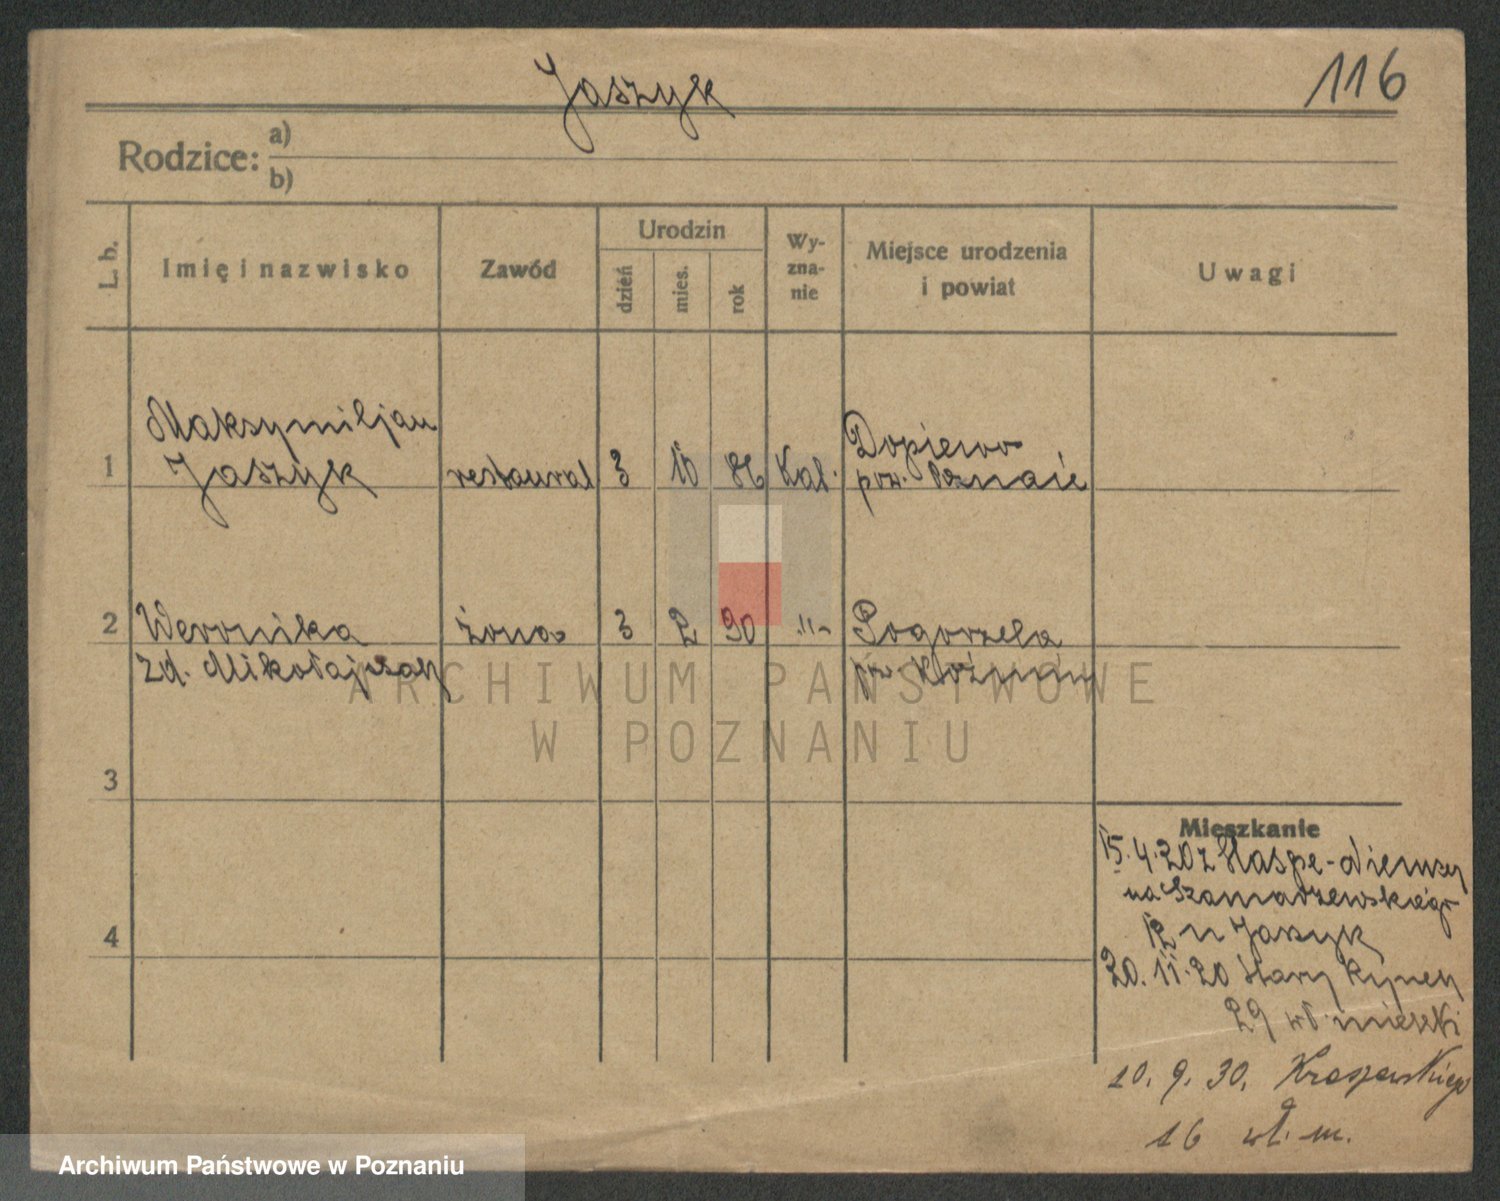 Jaszyk
116
Rodzice: a)
b)
L. b.
Imię i nazwisko
Zawód
Urodzin
dzień
mies.
rok
Wy-
zna-
nie
Miejsce urodzenia
i powiat
Uwagi
Maksymiljan
1 Jaszyk restaurat 3 10 86 Kat.
Dopiewo
pow. Poznań
2 Weronika żona 3 2 90 -"- Pogorzela
zd. Mikołajczak pow. Koźmin
3
4
Mieszkanie
15.4.20 z Haspe-Niemcy
na Szamarzewskiego
12 u Jaszyk
20.11.20 Stary Rynek
29 wł. mieszk.
10.9.30. Kraszewskiego
16 wł. m.
ARCHIWUM PAŃSTWOWE
W POZNANIU
Archiwum Państwowe w Poznaniu